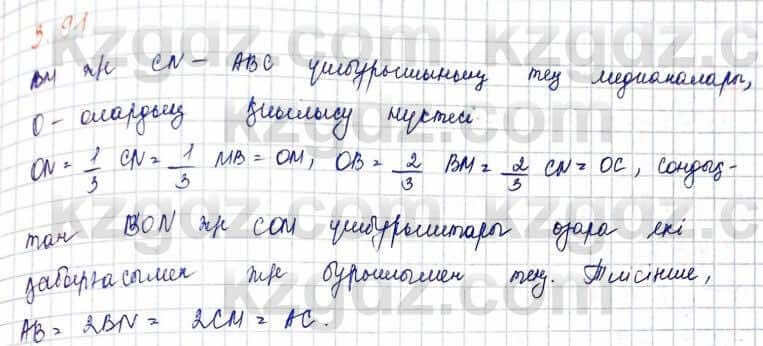 3.91
BM жє CN - ABC үшбұрышының тең медианалары,
O - олардың қиылысу нүктесі.
ON = 1/3 CN = 1/3 MB = OM, OB = 2/3 BM = 2/3 CN = OC, сондық-
тан BON жє COM үшбұрыштары өзара екі
қабырғасымен жє бұрышымен тең. Тиісінше,
AB = 2BN = 2CM = AC.
kzgdz.com